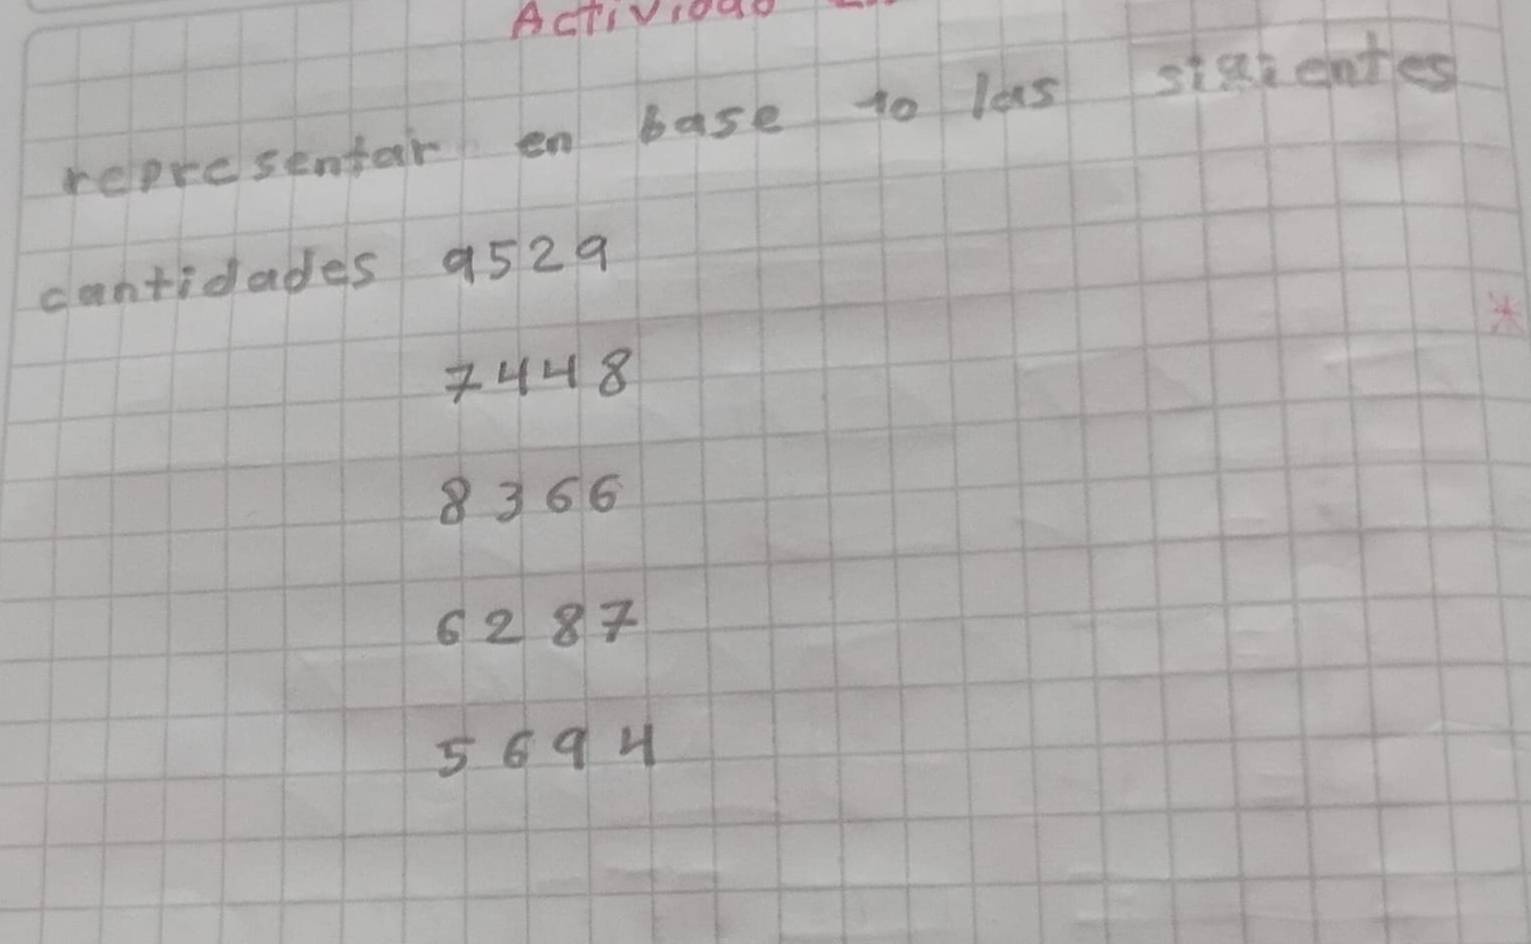 Actividad
representar en base 10 las sigientes
cantidades 9529
7448
8366
6287
5694